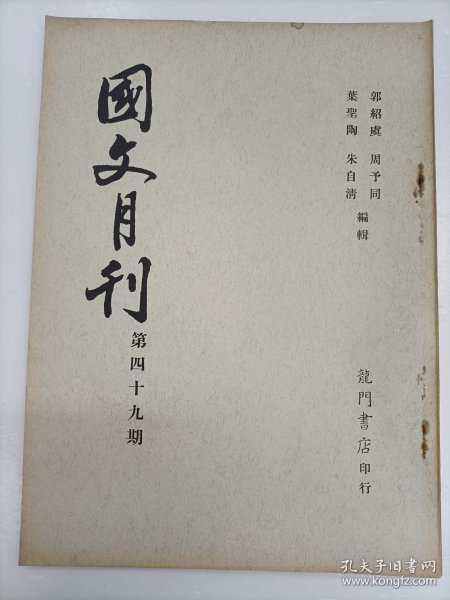 國文月刊
第四十九期
郭紹虞 周予同
葉聖陶 朱自清 編輯
龍門書店印行
孔夫子旧书网
www.kongfz.com